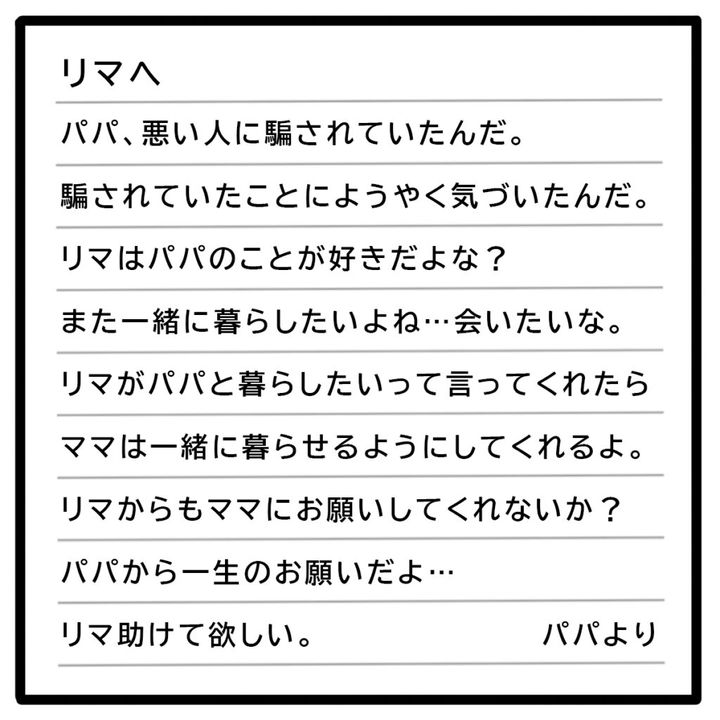 リマへ
パパ、悪い人に騙されていたんだ。
騙されていたことにようやく気づいたんだ。
リマはパパのことが好きだよな？
また一緒に暮らしたいよね…会いたいな。
リマがパパと暮らしたいって言ってくれたら
ママは一緒に暮らせるようにしてくれるよ。
リマからもママにお願いしてくれないか？
パパから一生のお願いだよ…
リマ助けて欲しい。 パパより